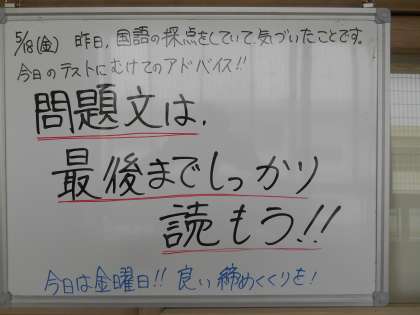 5/18(金) 昨日、国語の採点をしていて、気づいたことです。
今日のテストにむけてのアドバイス!!
問題文は、
最後までしっかり
読もう!!
今日は金曜日!! 良い締めくくりを!